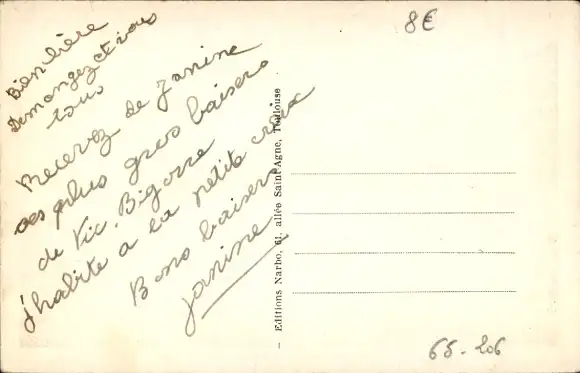 8€
Bien chère
Demongez et vous
tous
Recevez de Janine
ses plus gros baisers
de Vic. Bigorre
J'habite a la petite croix
Bons baisers
Janine
- Editions Narbo, 61, allée Saint-Agne, Toulouse
65-206